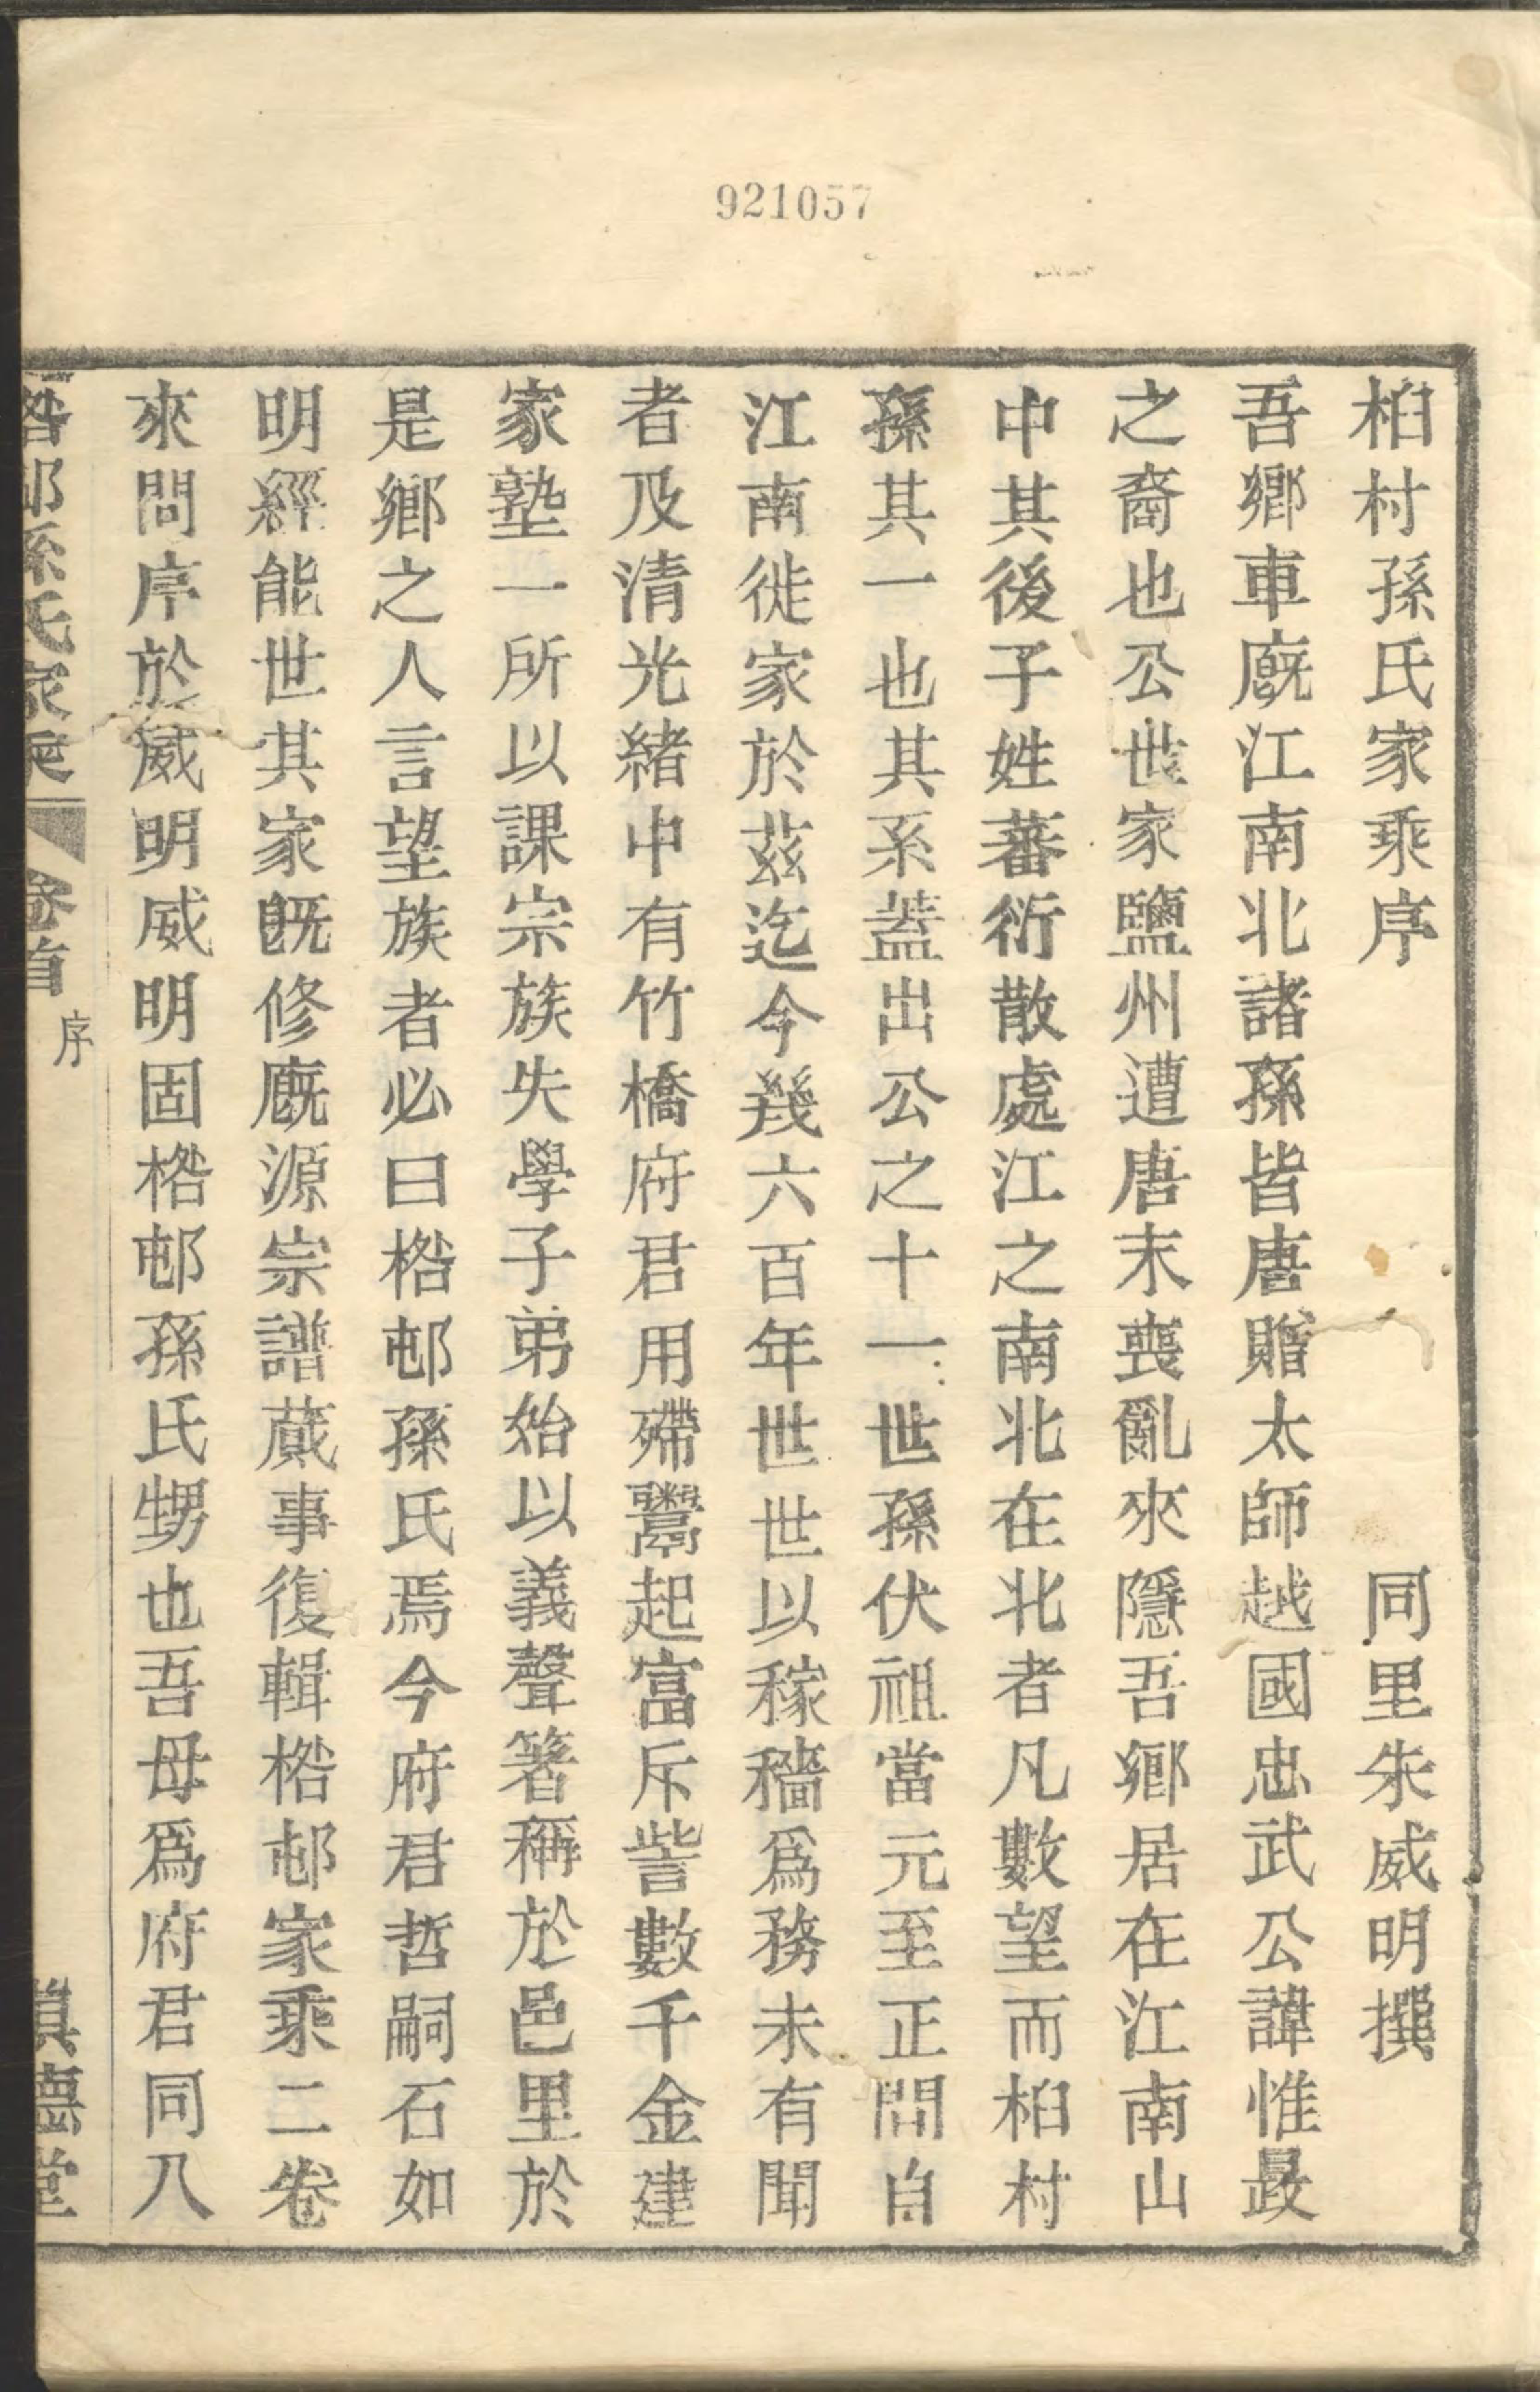 921057
桕村孫氏家乘序 同里朱威明撰
吾鄉車廐江南北諸孫皆唐贈太師越國忠武公諱惟晸
之裔也公世家鹽州遭唐末喪亂來隱吾鄉居在江南山
中其後子姓蕃衍散處江之南北在北者凡數望而桕村
孫其一也其系蓋出公之十一世孫伏祖當元至正間自
江南徙家於茲迄今幾六百年世世以稼穡爲務未有聞
者及清光緒中有竹橋府君用殢鬻起富斥訾數千金建
家塾一所以課宗族失學子弟始以義聲箸稱於邑里於
是鄉之人言望族者必曰桰邨孫氏焉今府君哲嗣石如
明經能世其家旣修廐源宗譜蕆事復輯桰邨家乘二卷
來問序於威明威明固桰邨孫氏甥也吾母爲府君同八
桰邨孫氏家乘 卷首 序 眞德堂